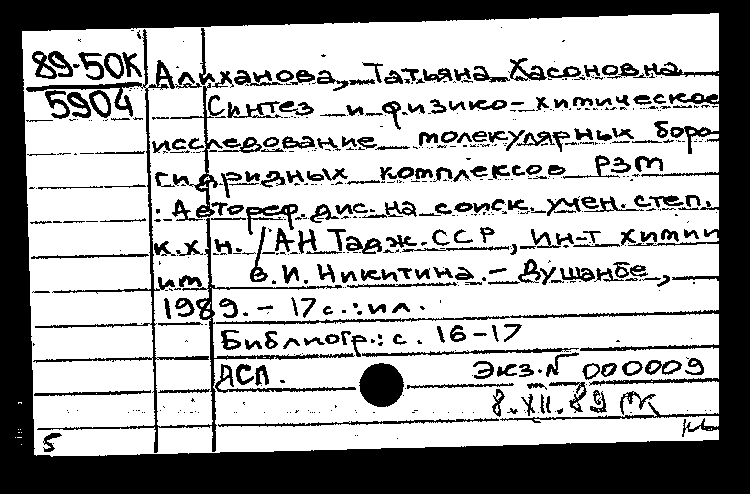 89-50К
5904
Алиханова, Татьяна Хасоновна
Синтез и физико-химическое
исследование молекулярных боро-
гидридных комплексов РЗМ
: Автореф. дис. на соиск. учен. степ.
к.х.н. / АН Тадж. ССР, Ин-т химии
им. В.И. Никитина. - Душанбе,
1989. - 17 с. : ил.
Библиогр.: с. 16-17
Экз. N 000009
8.XII.89
5